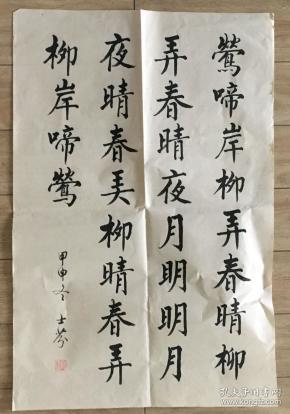 鶯啼岸柳弄春晴柳
弄春晴夜月明明月
夜晴春美柳晴春弄
柳岸啼鶯
甲申冬 士芬
孔夫子旧书网